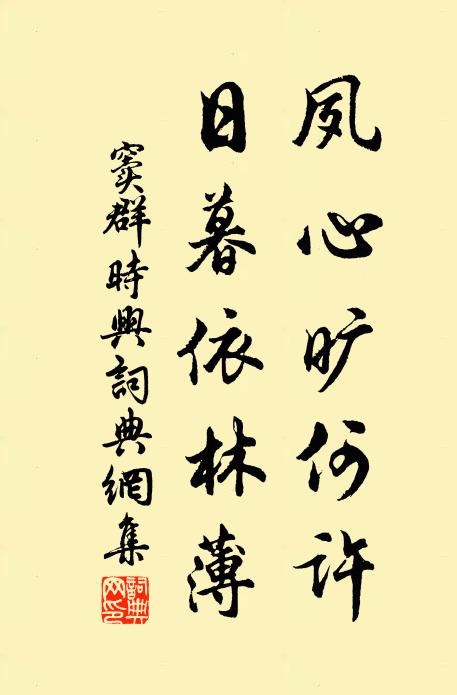 夙心旷何许
日暮依林薄
窦群時興詞典網集
詞典网印